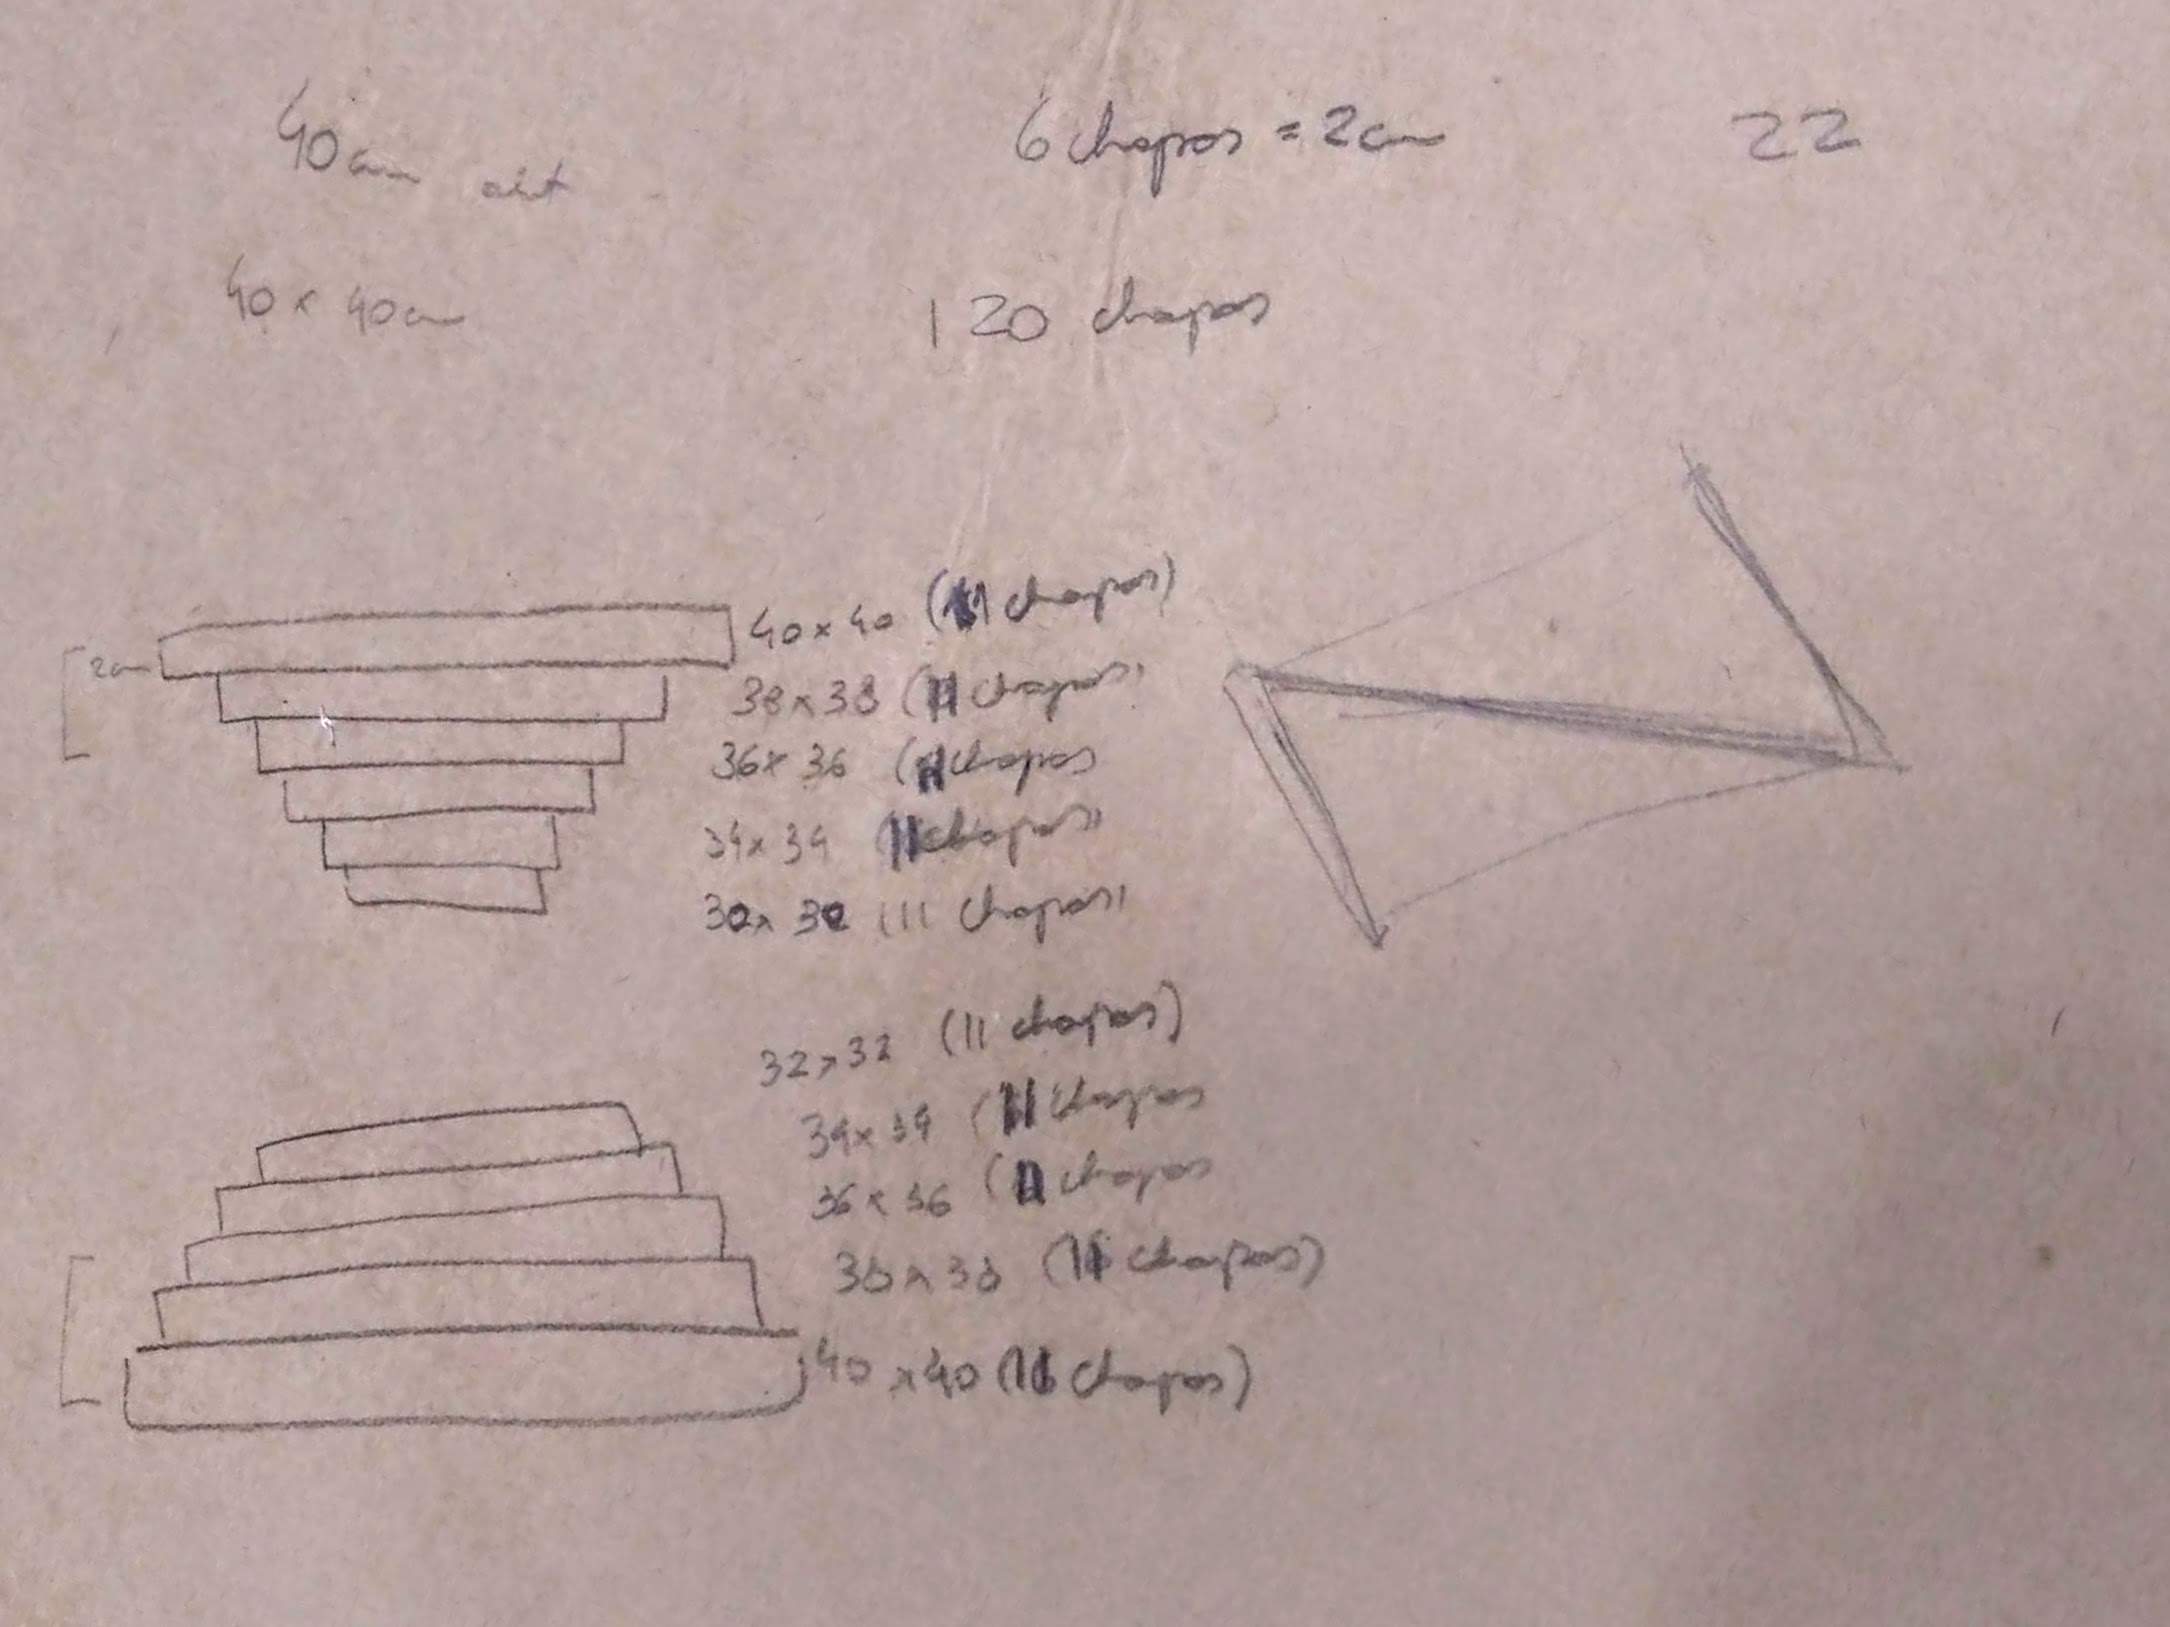 40cm alt
6 chapas = 2cm
22
40 x 40cm
120 chapas
40 x 40 (11 chapas)
2cm
38 x 38 (11 chapas)
36 x 36 (11 chapas
34 x 34 (11 chapas)
30 x 30 (11 chapas)
32 x 32 (11 chapas)
34 x 34 (11 chapas
36 x 36 (11 chapas
38 x 38 (11 chapas)
40 x 40 (11 chapas)